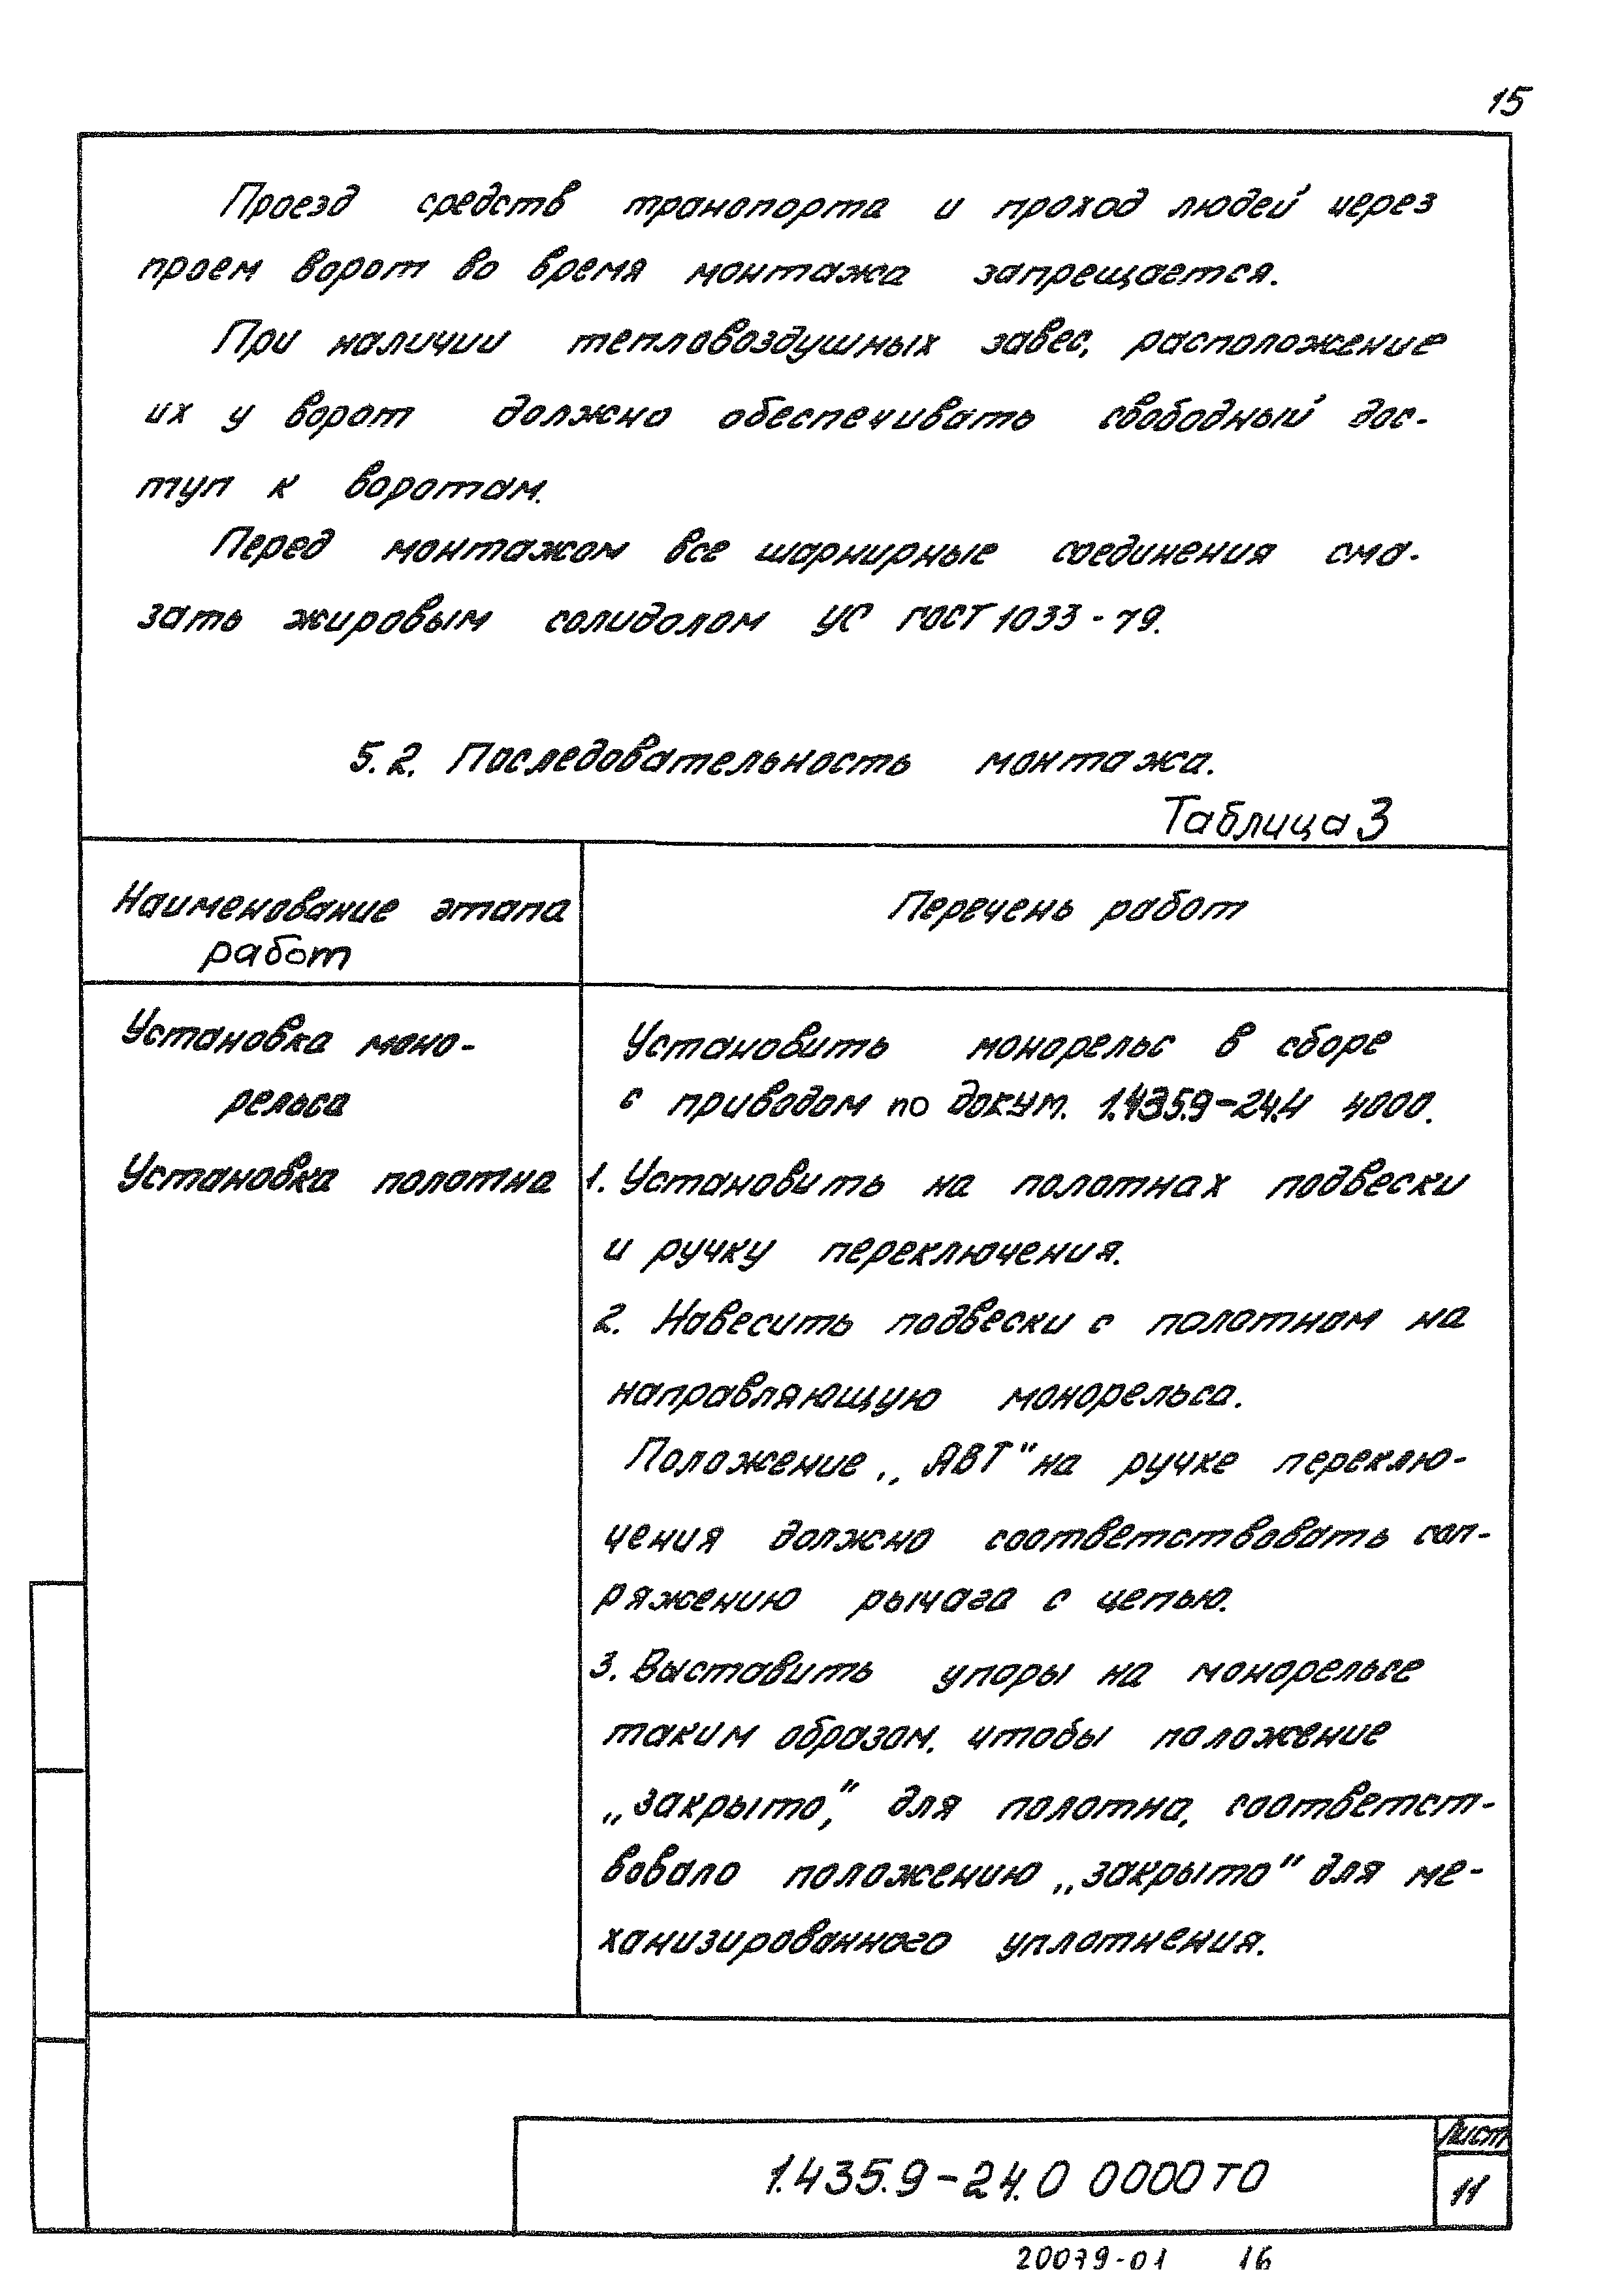 15
Проезд средств транспорта и проход людей через
проем ворот во время монтажа запрещается.
При наличии тепловоздушных завес, расположение
их у ворот должно обеспечивать свободный дос-
туп к воротам.
Перед монтажом все шарнирные соединения сма-
зать жировым солидолом УС ГОСТ 1033-79.
5.2. Последовательность монтажа.
Таблица 3
Наименование этапа
работ
Перечень работ
Установка моно-
рельса
Установить монорельс в сборе
с приводом по докум. 1.435.9-24.4 4000.
Установка полотна
1. Установить на полотнах подвески
и ручку переключения.
2. Навесить подвески с полотном на
направляющую монорельса.
Положение „АВТ" на ручке переклю-
чения должно соответствовать соп-
ряжению рычага с цепью.
3. Выставить упоры на монорельсе
таким образом, чтобы положение
„закрыто", для полотна, соответст-
вовало положению „закрыто" для ме-
ханизированного уплотнения.
1.435.9-24.0 0000ТО
Лист
11
20079-01 16